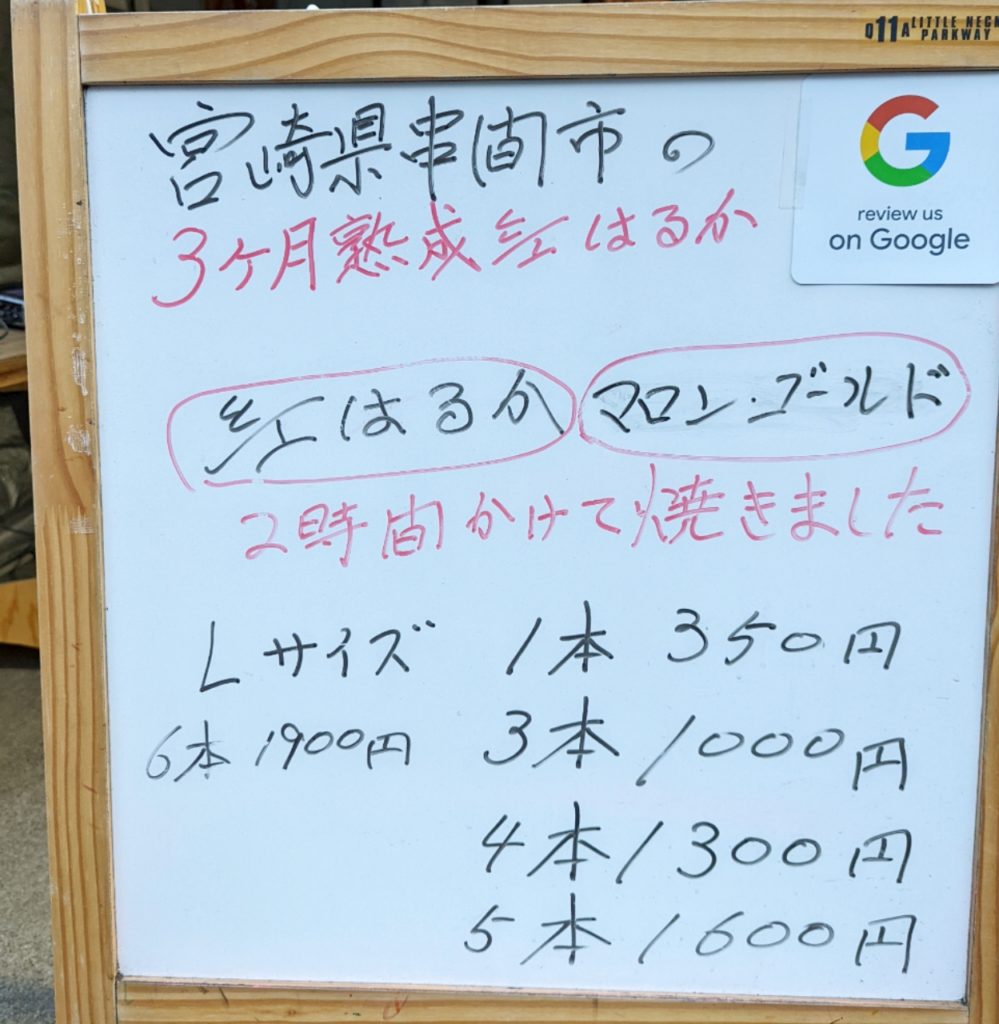 Q11A LITTLE NECK PARKWAY
宮崎県串間市の
3ヶ月熟成紅はるか
review us
on Google
紅はるか マロン・ゴールド
2時間かけて焼きました
Lサイズ 1本 350円
6本 1900円 3本 1000円
4本 1300円
5本 1600円